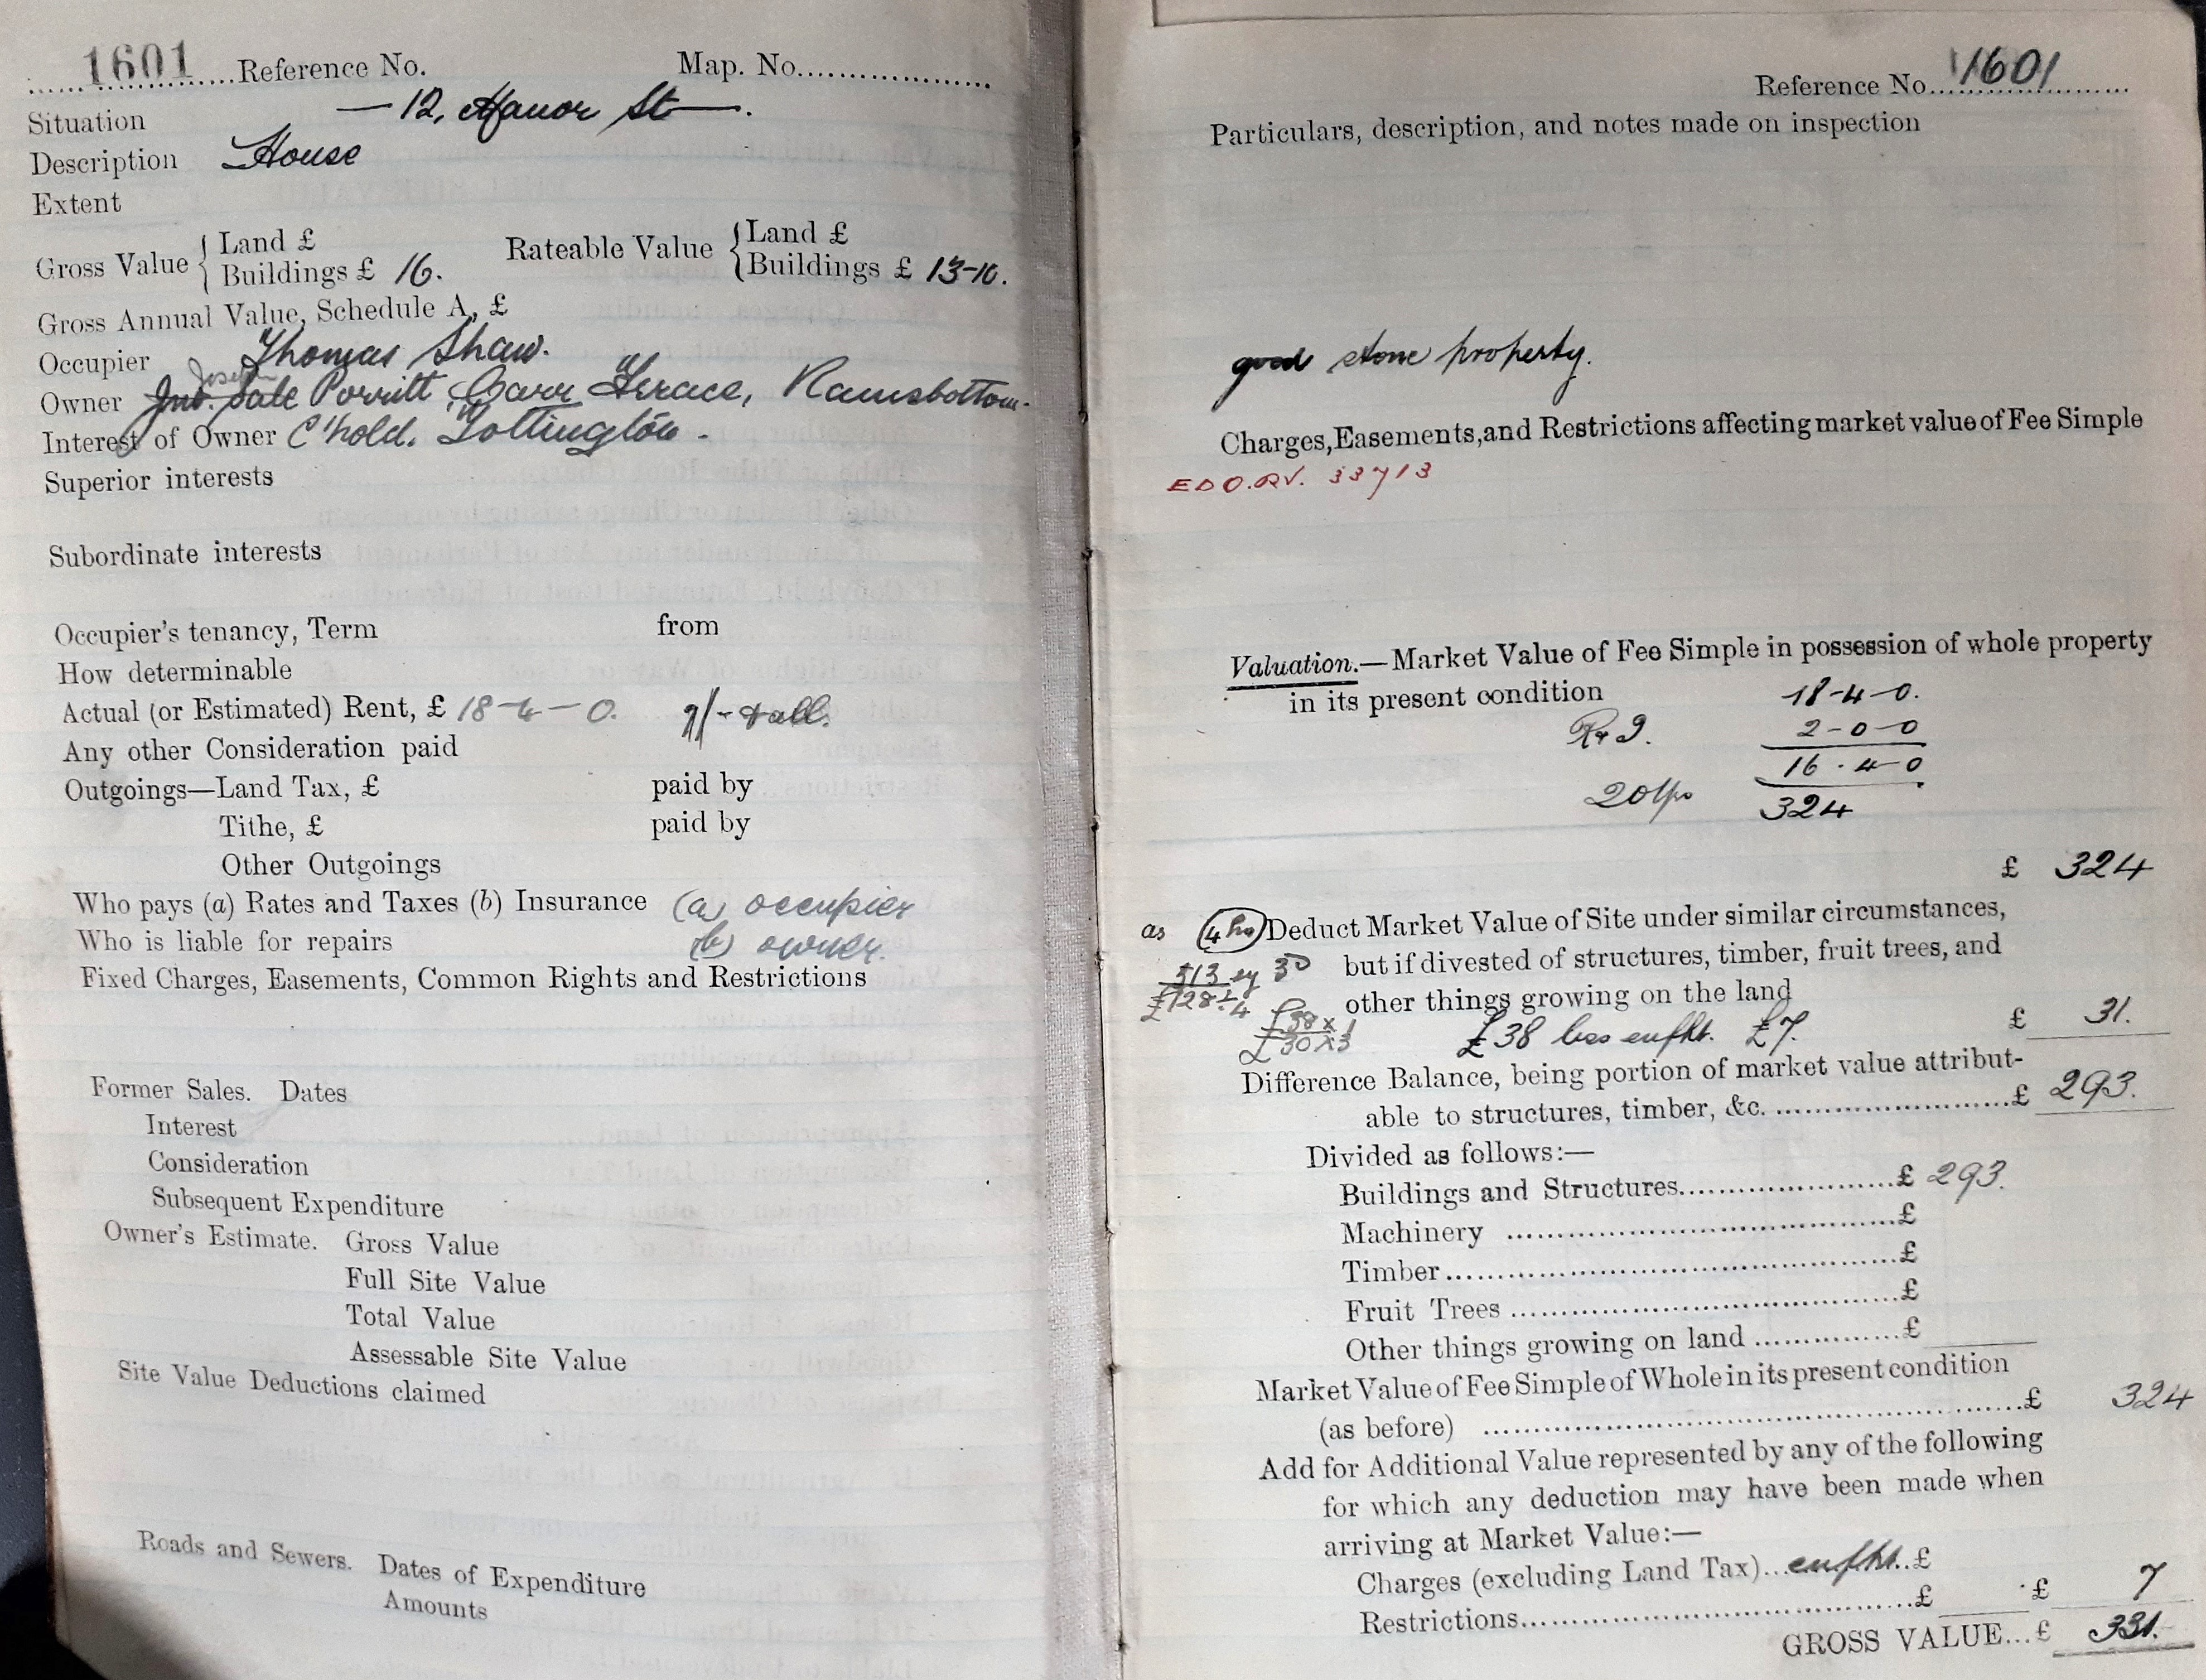 1601 Reference No. Map. No.
Situation — 12, Manor St — .
Description House
Extent
Gross Value { Land £
Buildings £ 16.
Rateable Value { Land £
Buildings £ 13-10.
Gross Annual Value, Schedule A, £
Occupier Thomas Shaw.
Joseph
Owner Jno. Sale Porritt, Carr Terrace, Ramsbottom.
Interest of Owner C'hold. Tottington.
Superior interests
Subordinate interests
Occupier's tenancy, Term from
How determinable
Actual (or Estimated) Rent, £ 18-4-0.
Any other Consideration paid
Outgoings—Land Tax, £ paid by
Tithe, £ paid by
Other Outgoings
Who pays (a) Rates and Taxes (b) Insurance (a) occupier
Who is liable for repairs (b) owner.
Fixed Charges, Easements, Common Rights and Restrictions
Former Sales. Dates
Interest
Consideration
Subsequent Expenditure
Owner's Estimate. Gross Value
Full Site Value
Total Value
Assessable Site Value
Site Value Deductions claimed
Roads and Sewers. Dates of Expenditure
Amounts
Reference No. 1601
Particulars, description, and notes made on inspection
good stone property.
Charges, Easements, and Restrictions affecting market value of Fee Simple
33713
Valuation.—Market Value of Fee Simple in possession of whole property
in its present condition 18-4-0.
R & I. 2-0-0
16.4-0
20 yp 324
£ 324
as 4 ho Deduct Market Value of Site under similar circumstances,
513 sy 3D but if divested of structures, timber, fruit trees, and
£128÷4 other things growing on the land
£38 x 1
£30 x 3
£38 less enfht. £7. £ 31.
Difference Balance, being portion of market value attribut-
able to structures, timber, &c. £ 293.
Divided as follows:—
Buildings and Structures £ 293.
Machinery £
Timber £
Fruit Trees £
Other things growing on land £
Market Value of Fee Simple of Whole in its present condition
(as before) £ 324
Add for Additional Value represented by any of the following
for which any deduction may have been made when
arriving at Market Value:—
Charges (excluding Land Tax) enfht. £
Restrictions £ £ 7
GROSS VALUE... £ 331.